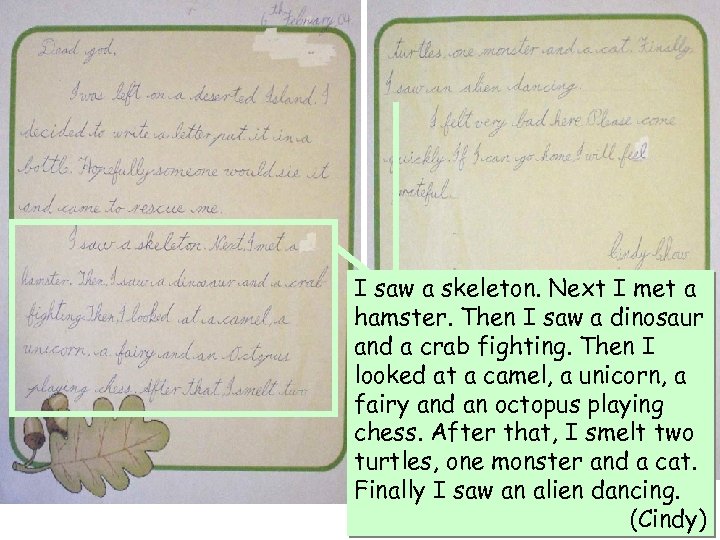 6th February, 04
Dead god,
I was left on a deserted Island. I
decided to write a letter, put it in a
bottle. Hopefully someone would sie it
and came to rescue me.
I saw a skeleton. Next, I met a
hamster. Then, I saw a dinosaur and a crab
fighting. Then, I looked at a camel, a
unicorn, a fairy and an Octopus
playing chess. After that, I smelt two
turtles, one monster and a cat. Finally
I saw an alien dancing.
I felt very bad here. Please come
quickly. If I can go home, I will feel
grateful.
Cindy Chow
I saw a skeleton. Next I met a
hamster. Then I saw a dinosaur
and a crab fighting. Then I
looked at a camel, a unicorn, a
fairy and an octopus playing
chess. After that, I smelt two
turtles, one monster and a cat.
Finally I saw an alien dancing.
(Cindy)